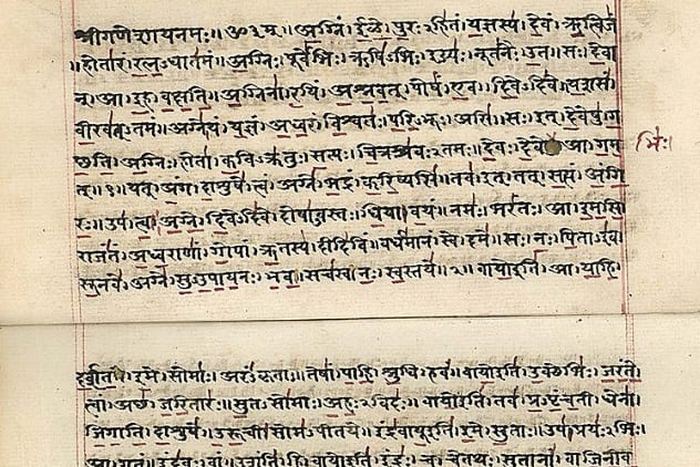 श्रीगणेशायनमः॥ॐ३म्॥अग्निं।ईळे।पुरःऽहितं।यज्ञस्य।देवं।ऋत्विजं
॥होतारं।रत्नऽधातमं॥अग्निः।पूर्वेभिः।ऋषिऽभिः।ईड्यः।नूतनैः।उत॥सः।देवा
न्।आ।इह।वक्षति॥अग्निना।रयिं।अश्नवत्।पोषं।एव।दिवेऽदिवे॥यशसं
वीरवत्ऽतमं॥अग्ने।यं।यज्ञं।अध्वरं।विश्वतः।परिऽभूः।असि॥सः।इत्।देवेषु।ग
च्छति॥अग्निः।होता।कविऽक्रतुः।सत्यः।चित्रश्रवःऽतमः॥देवः।देवे।आ।गम
भिः
त्॥१॥यत्।अंग।दाशुषे।त्वं।अग्ने।भद्रं।करिष्यसि॥तव।इत्।तत्।सत्यं।अंगि
रः॥उप।त्वा।अग्ने।दिवेऽदिवे।दोषाऽवस्तः।धिया।वयं॥नमः।भरंतः।आ।इमसि॥
राजंतं।अध्वराणां।गोपां।ऋतस्य।दीदिविं॥वर्धमानं।स्वे।दमे॥सः।नः।पिताऽइव
सूनवे।अग्ने।सुऽउपायनः।भव॥सचस्व।नः।स्वस्तये॥२॥वायोइति।आ।याहि।
दर्शत।इमे।सोमाः।अरंऽकृताः॥तेषां।पाहि।श्रुधि।हवं॥वायोइति।उक्थेभिः।जरंते
त्वां।अच्छ।जरितारः॥सुतऽसोमाः।अहःऽविदः॥वायोइति।तव।प्रऽपृंचती।धेना।
जिगाति।दाशुषे॥उरूची।सोमऽपीतये॥इंद्रवायूइति।इमे।सुताः॥उप।प्रयःऽभिः।
आ।गतं॥इंदवः।वां।उशंति।हि॥वायोइति।इंद्रः।च।चेतथः।सुतानां।वाजिनीव